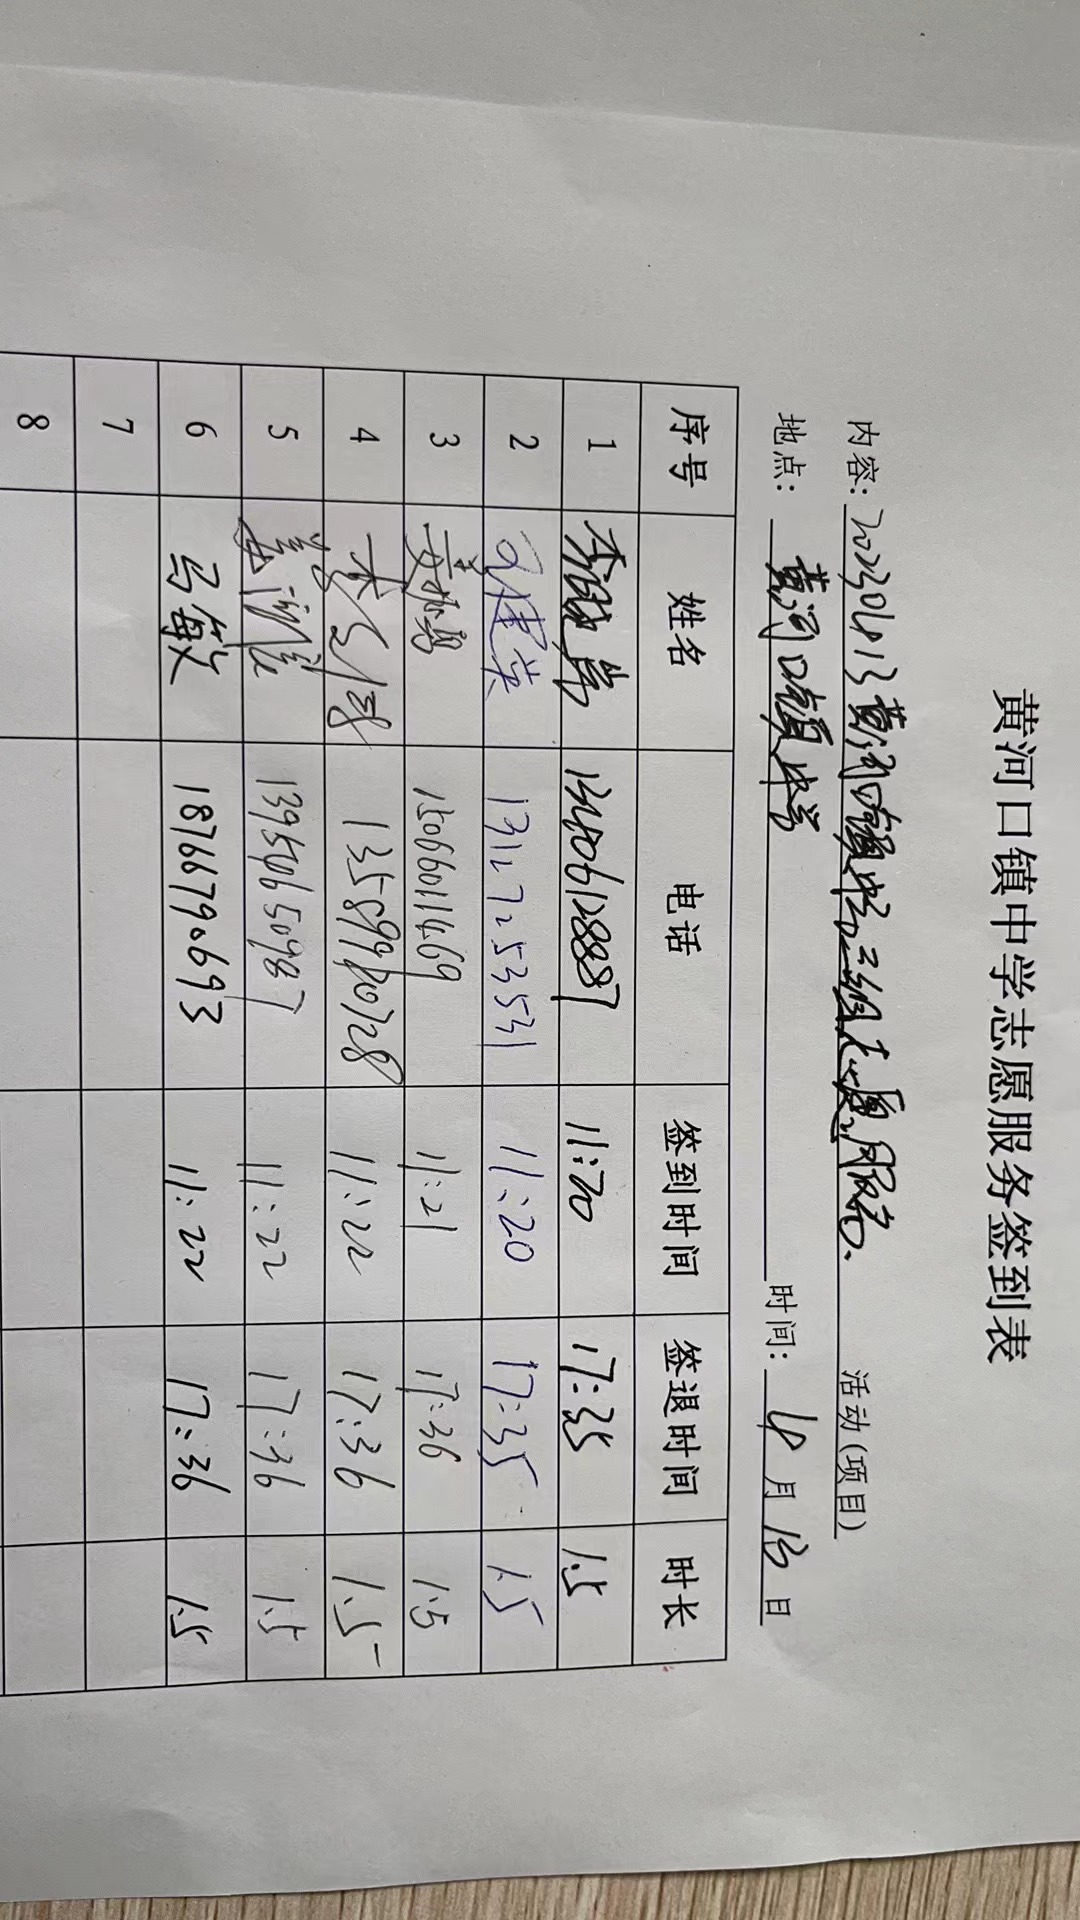 黄河口镇中学志愿服务签到表
内容：20230413黄河口镇中学三组志愿服务. 活动(项目)
地点：黄河口镇中学 时间：4月13日
序号 姓名 电话 签到时间 签退时间 时长
1 11:20 17:35 1.5
2 王建英 13127253531 11:20 17:35 1.5
3 15066011469 11:21 17:36 1.5
4 13589990728 11:22 17:36 1.5
5 13954650987 11:22 17:36 1.5
6 马敏 18766790693 11:22 17:36 1.5
7
8